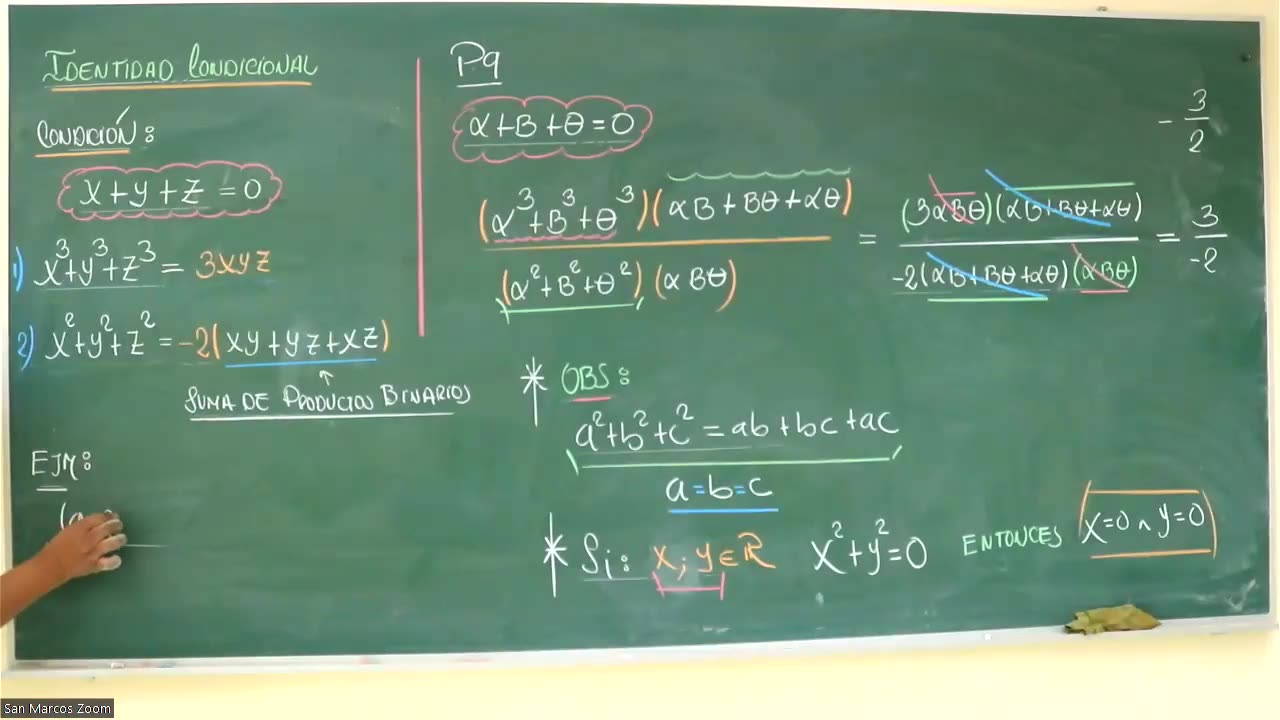 IDENTIDAD CONDICIONAL
CONDICIÓN:
x+y+z=0
1) x³+y³+z³ = 3xyz
2) x²+y²+z² = -2(xy+yz+xz)
↑
SUMA DE PRODUCTOS BINARIOS
EJM:
(a
P9
α+B+θ=0
(α³+B³+θ³)(αB+Bθ+αθ) / (α²+B²+θ²)(αBθ) = (3αBθ)(αB+Bθ+αθ) / -2(αB+Bθ+αθ)(αBθ) = 3/-2
-3/2
* OBS:
a²+b²+c² = ab+bc+ac
a=b=c
* Si: x; y∈R x²+y²=0 ENTONCES x=0 ∧ y=0
San Marcos Zoom